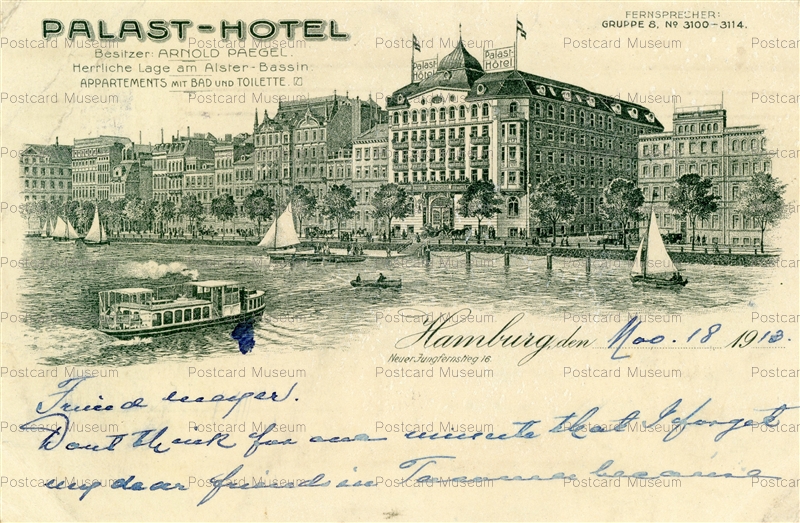 PALAST-HOTEL
Besitzer: ARNOLD PAEGEL.
Herrliche Lage am Alster-Bassin.
APPARTEMENTS MIT BAD UND TOILETTE.
FERNSPRECHER:
GRUPPE 8, No 3100-3114.
Palast-Hôtel
Palast-Hôtel
Palast Hôtel
Hamburg, den Nov. 18 1913.
Neuer Jungfernstieg 16.
Friend mayer.
Dont think for one minute that I forget
my dear friends in Tacoma because
Postcard Museum